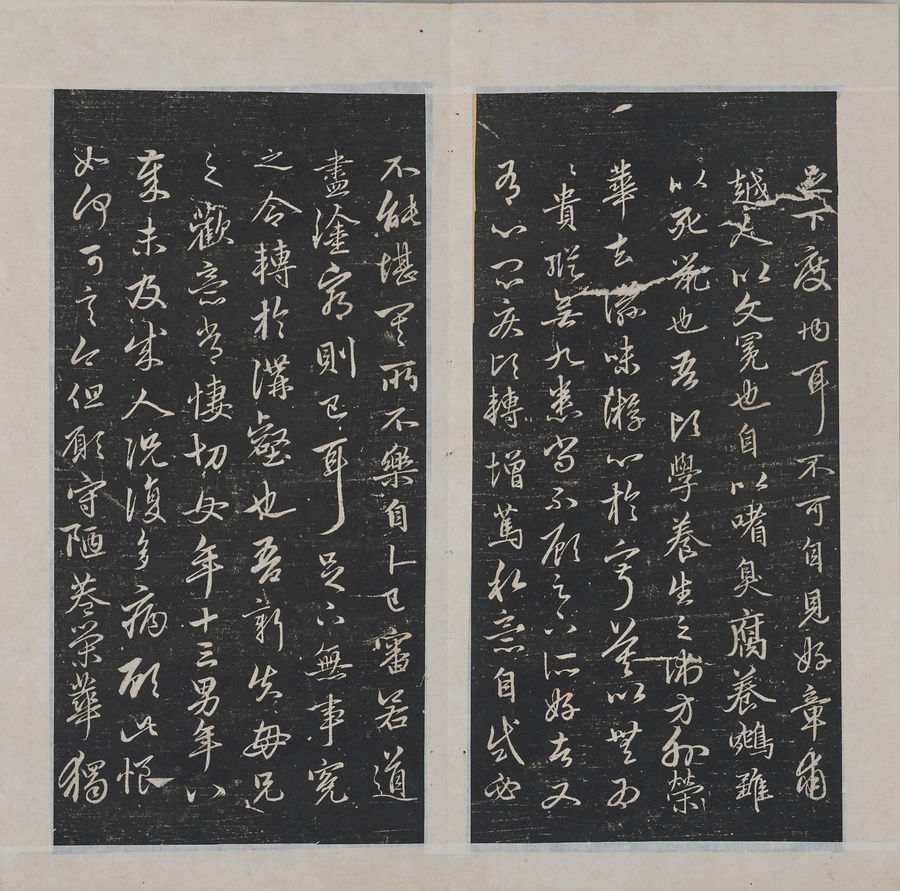 天下度內耳不可自見好章甫
越人以文冕也自以嗜臭腐養鴛雛
以死鼠也吾頃學養生之術方外榮
華去滋味遊心於寂莫以無為
為貴縱無九患尚不顧足下所好者又
有心悶疾頃轉增篤私意自試必
不能堪其所不樂自卜已審若道
盡塗窮則已耳足下無事寃
之令轉於溝壑也吾新失母兄
之歡意常悽切女年十三男年八
歲未及成人況復多病顧此恨恨
如何可言今但願守陋巷榮華獨